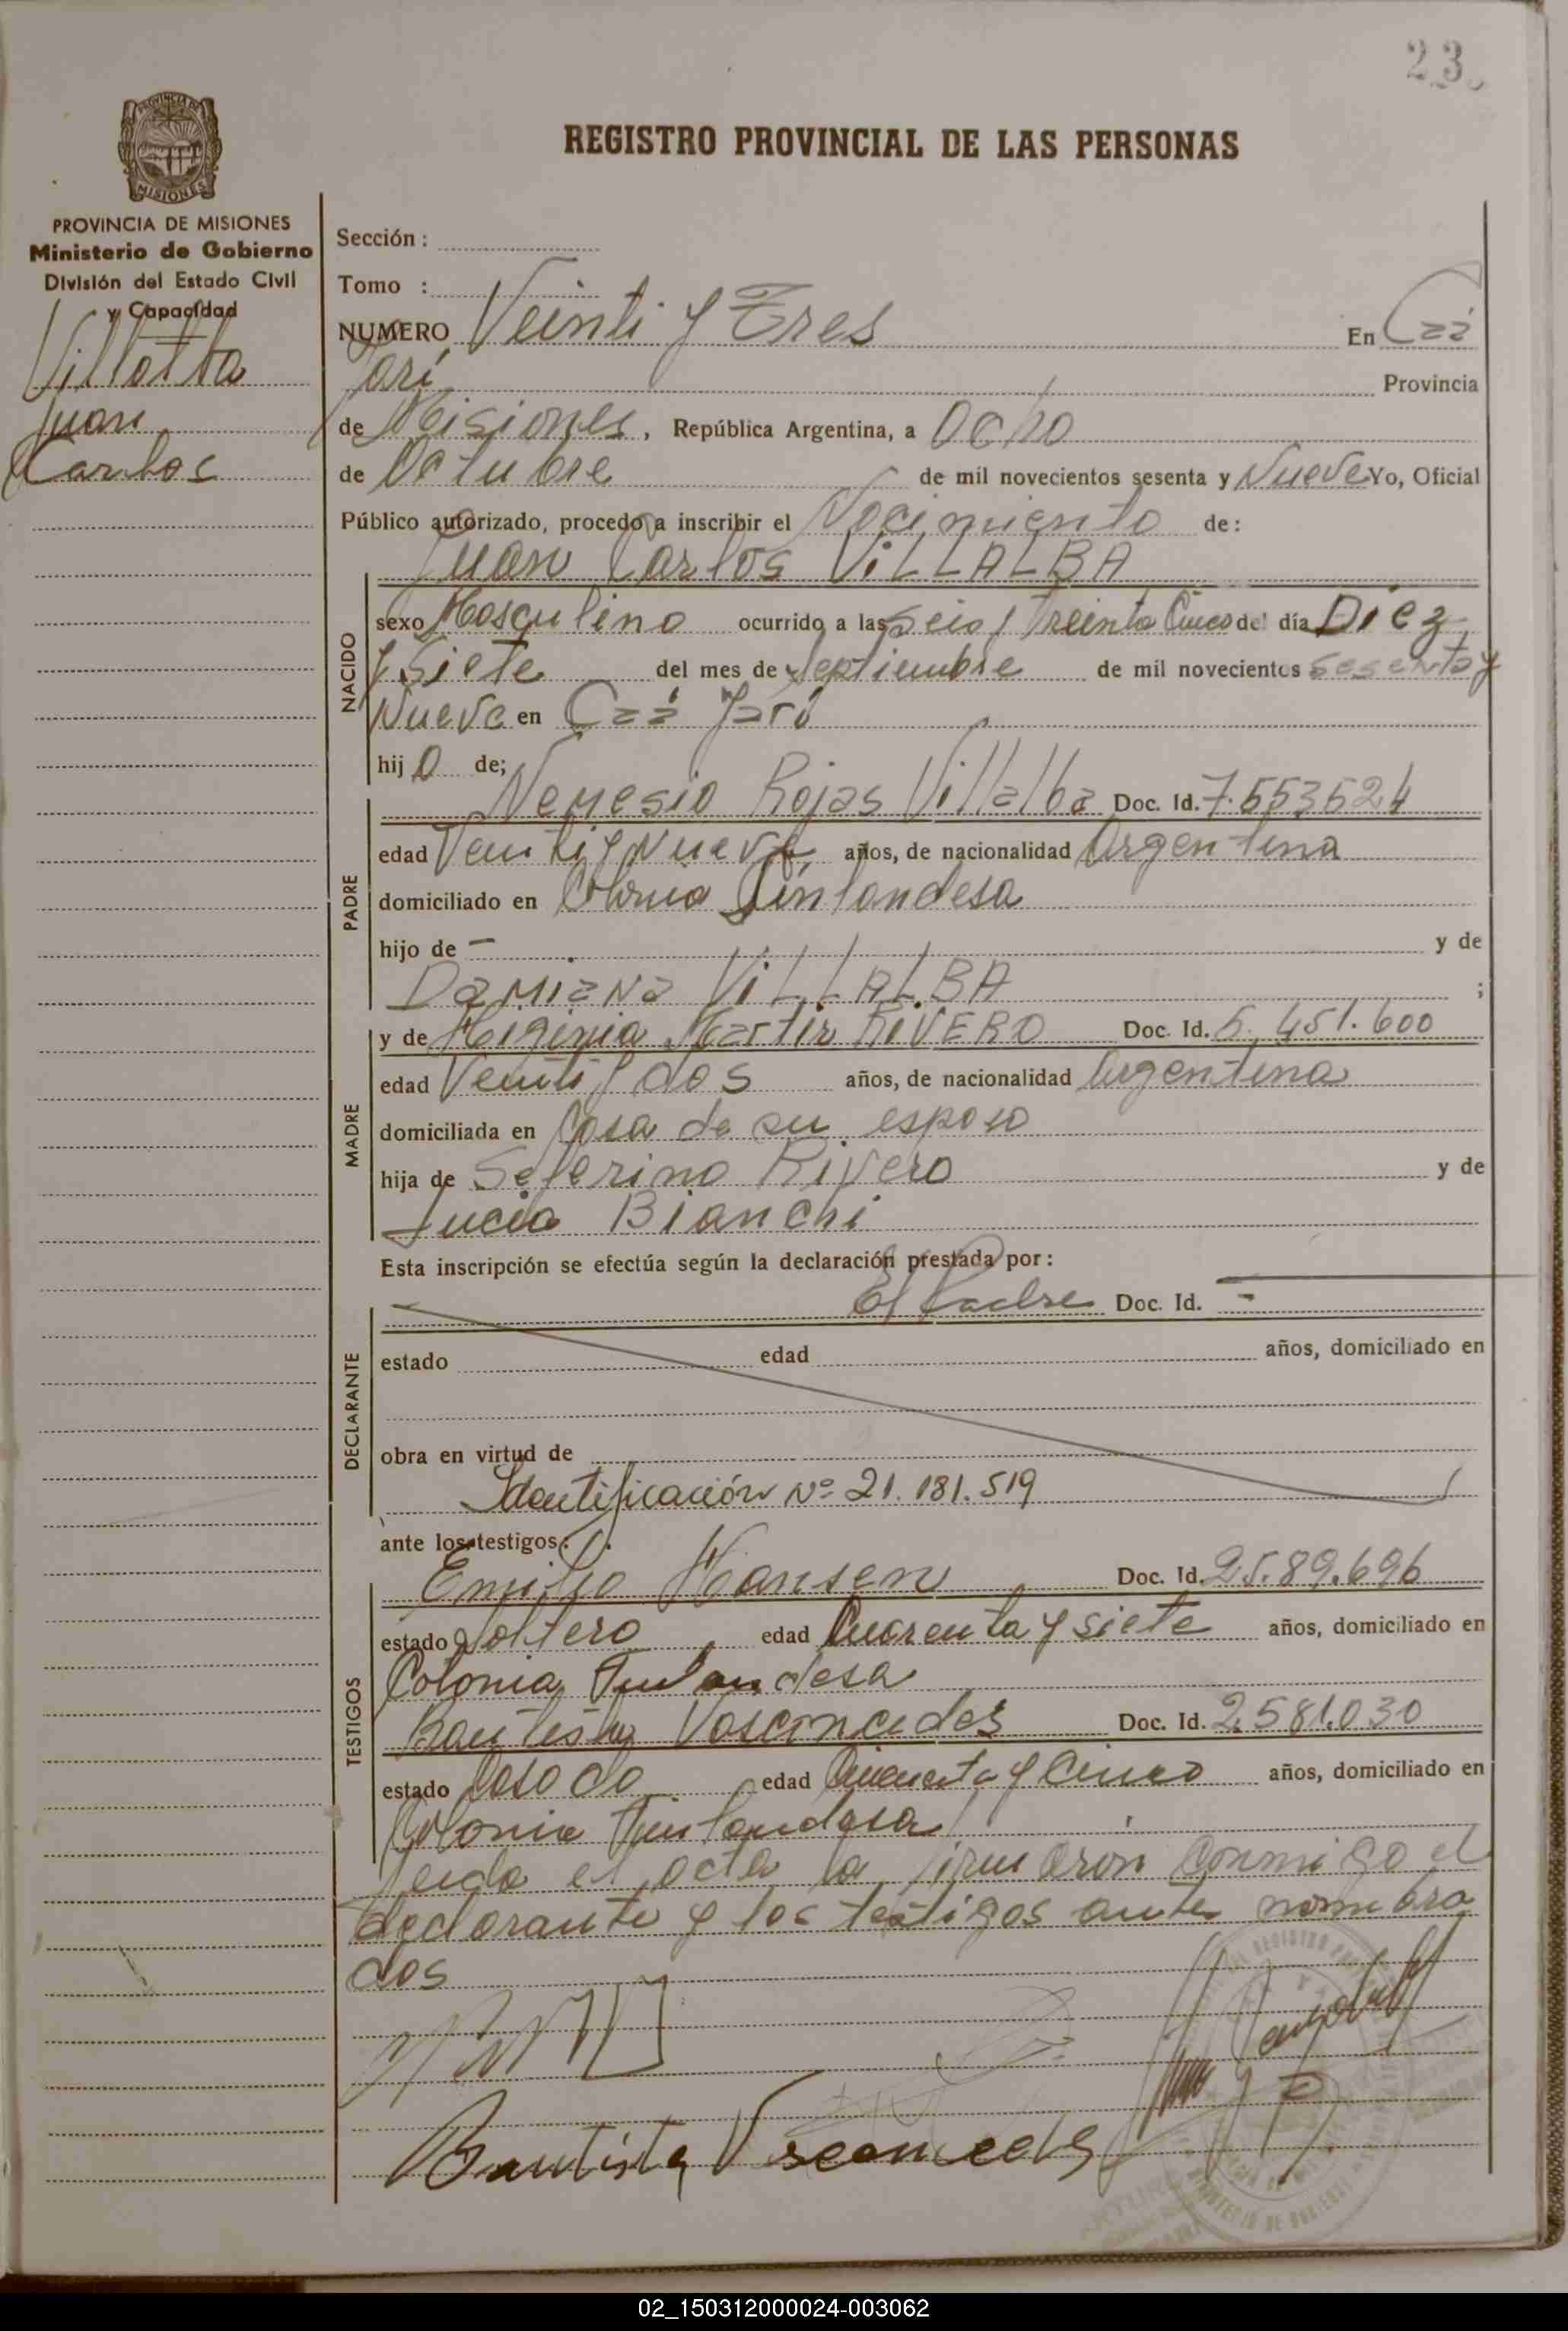 23
PROVINCIA DE MISIONES
MISIONES
PROVINCIA DE MISIONES
Ministerio de Gobierno
División del Estado Civil
y Capacidad
Villalba
Juan
Carlos
REGISTRO PROVINCIAL DE LAS PERSONAS
Sección :
Tomo :
NUMERO Veinti y Tres En Caá
Yarí Provincia
de Misiones, República Argentina, a Ocho
de Octubre de mil novecientos sesenta y Nueve Yo, Oficial
Público autorizado, procedo a inscribir el Nacimiento de:
Juan Carlos ViLLALBA
NACIDO
sexo Masculino ocurrido a las Seis y Treinta Cinco del día Diez
y Siete del mes de Septiembre de mil novecientos sesenta y
Nueve en Caá Yarí
hijo de;
PADRE
Nemesio Rojas Villalba Doc. Id. 7.553524
edad Veinti y Nueve años, de nacionalidad Argentina
domiciliado en Colonia Finlandesa
hijo de - y de
Damiana ViLLALBA ;
MADRE
y de Higinia Martir RiVERO Doc. Id. 5.451.600
edad Veinti y dos años, de nacionalidad Argentina
domiciliada en Casa de su esposo
hija de Seferino Rivero y de
Lucia Bianchi
Esta inscripción se efectúa según la declaración prestada por :
DECLARANTE
El Padre Doc. Id. -
estado edad años, domiciliado en
obra en virtud de
Identificación Nº 21.181.519
ante los testigos:
TESTIGOS
Emilio Hansen Doc. Id. 2.589.696
estado Soltero edad Cuarenta y siete años, domiciliado en
Colonia Finlandesa
Bautista Vasconcelos Doc. Id. 2.581.030
estado Casado edad Cincuenta y Cinco años, domiciliado en
Colonia Finlandesa
Leida el acta la firmaron conmigo el
declarante y los testigos antes nombra
dos
Bautista Vasconcels
02_150312000024-003062